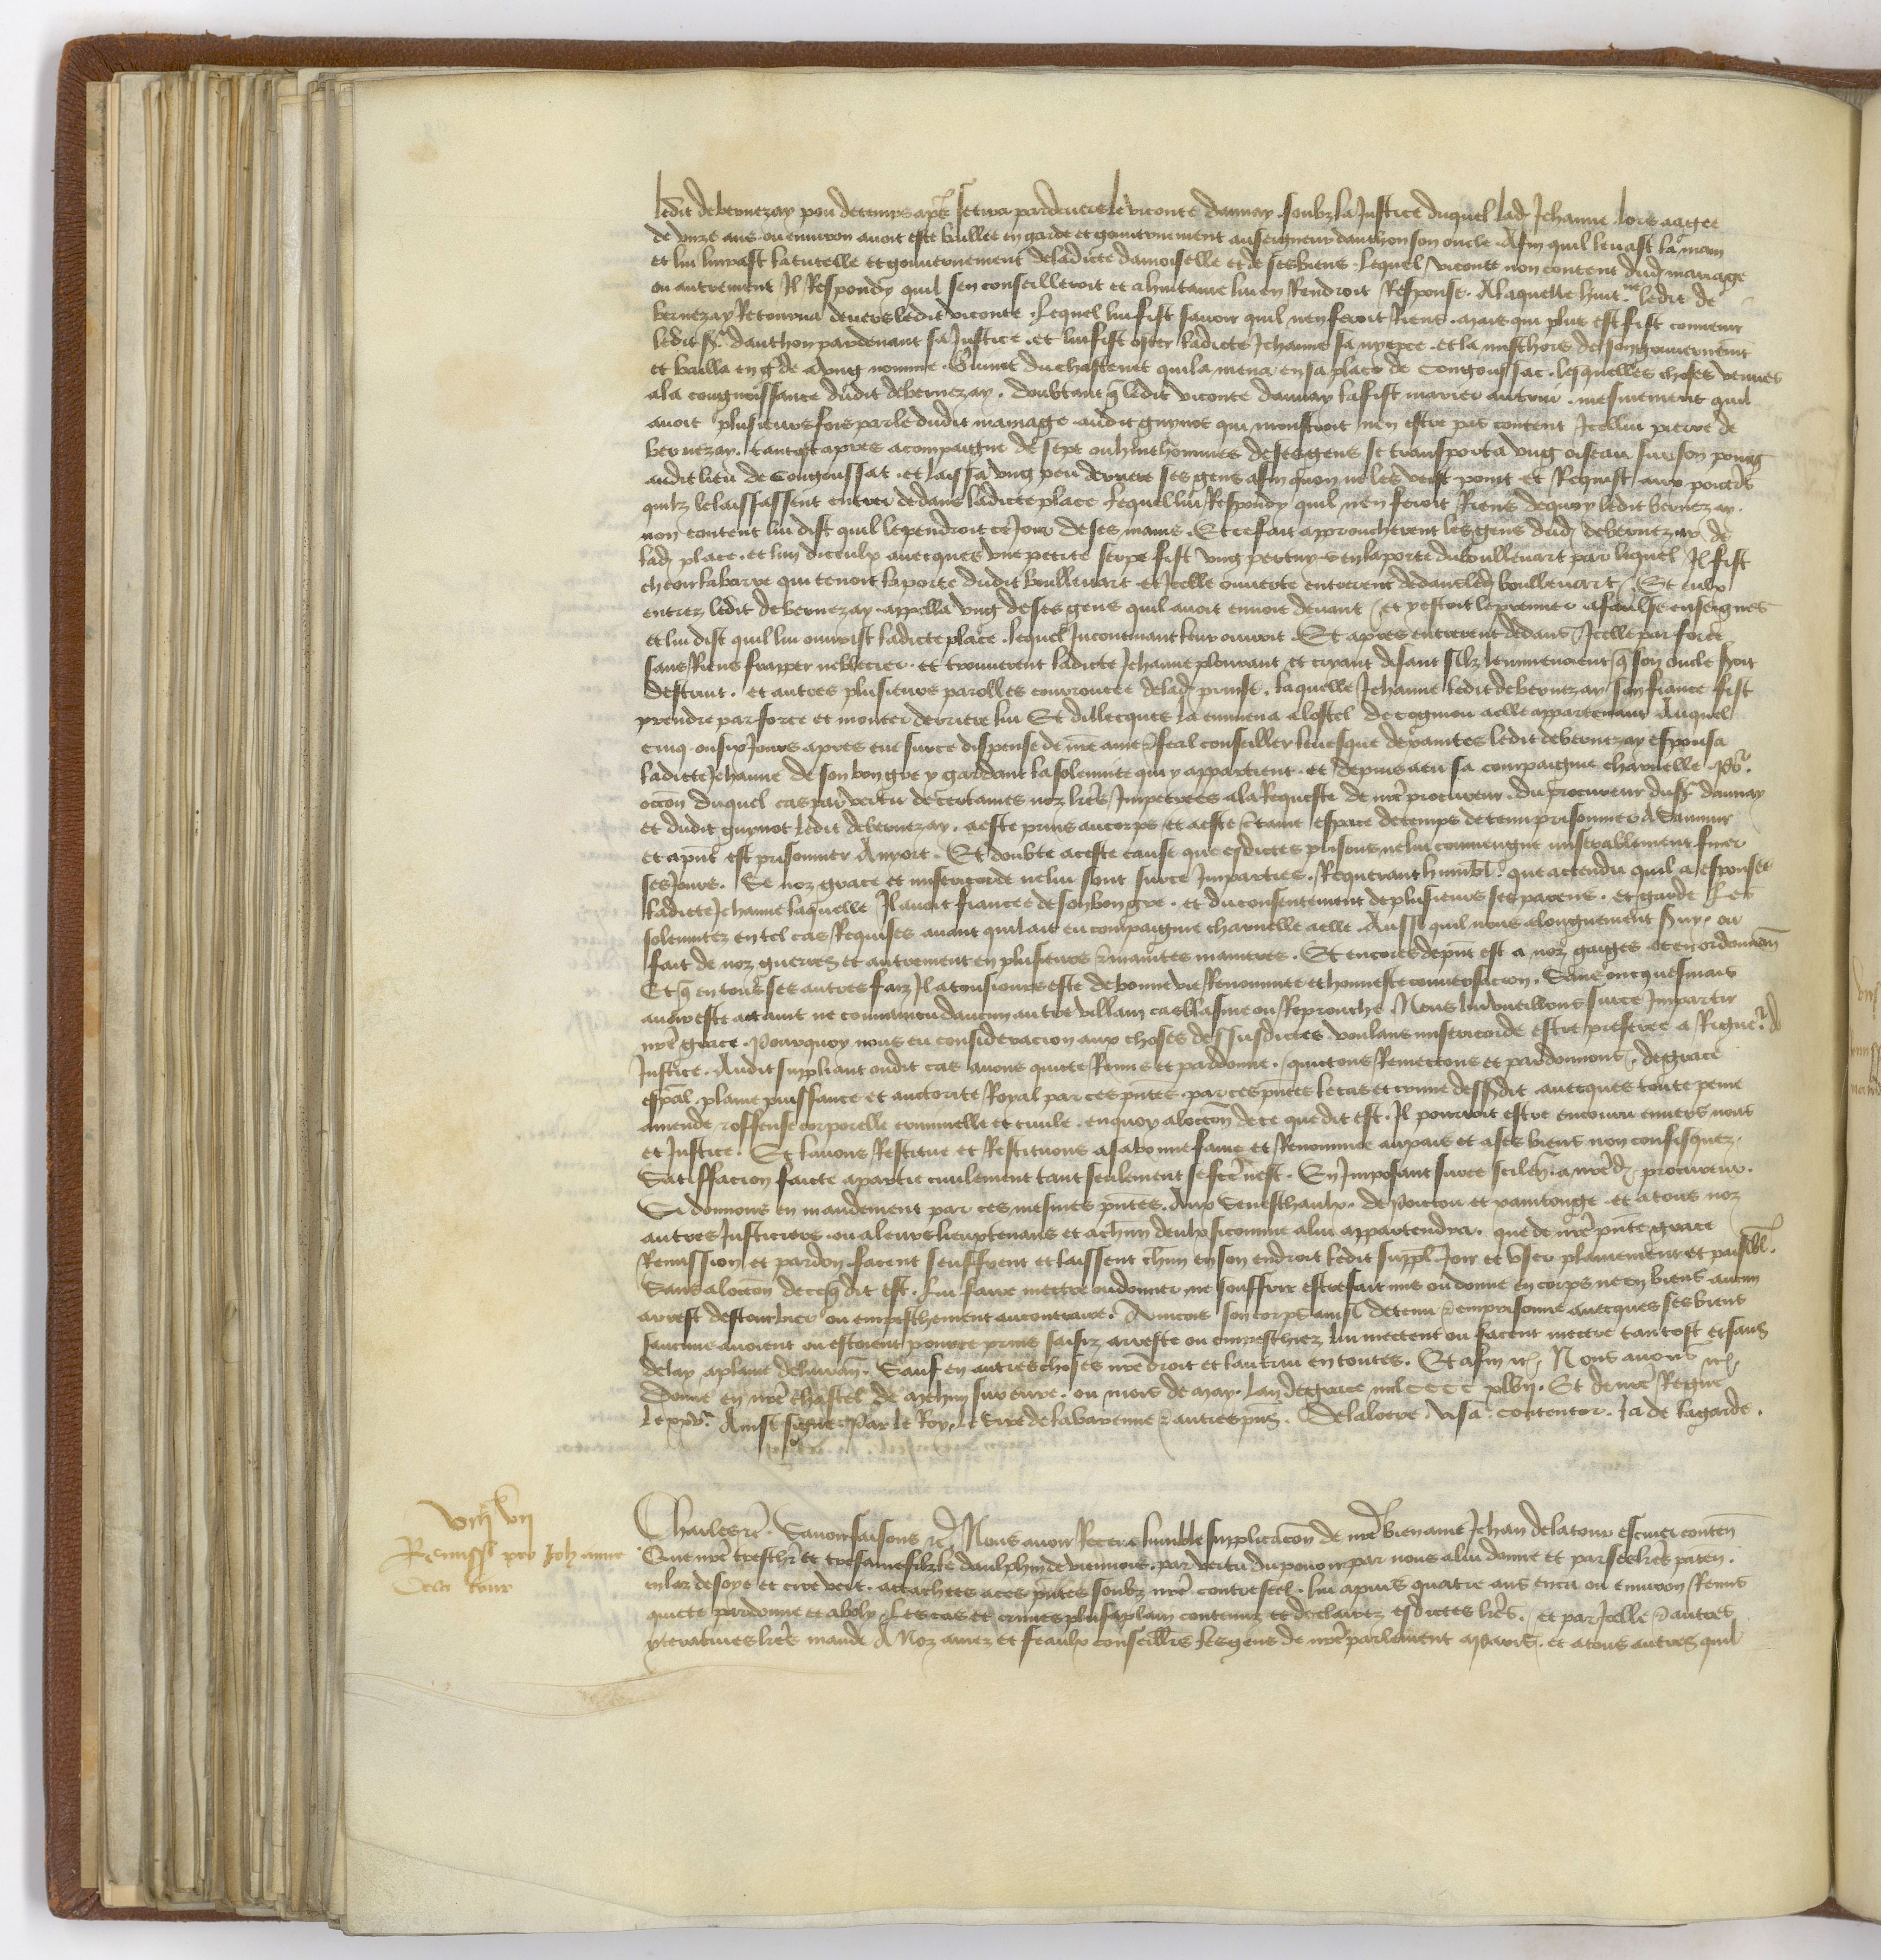 Ledit de bernezay pou de temps apres se tira pardevers le viconte daunay soubz la Justice duquel lad Jehanne lors aagee
de unze ans ou environ avoit este baillee en garde et gouvernement au seigneur danthon son oncle Afin quil levast la main
et lui livrast la tutelle et gouvernement de ladicte damoiselle et de ses biens lequel viconte non content dud mariage
ou autrement Il Respondy quil sen conseilleroit et a huitaine lui en Rendroit Response. A laquelle huitne ledit de
bernezay Retourna devers ledit viconte lequel lui fist savoir quil nen feroit Riens mais qui plus est fist convenir
ledit sr danthon pardevant sa Justice et lui fist oster ladicte Jehanne sa nyepce et la mist hors de son gouvernemt
et bailla en gde a ung nomme Guinot du chastenet qui la mena en sa place de Congoussac lesquelles choses venues
a la congnoissance dudit de bernezay doubtant q ledit viconte daunay la fist marier autrui mesmement quil
avoit plusieurs fois parle dudit mariage audit guynot qui monstroit nen estre pas content Icellui pierre de
bernezay tantost apres acompaigne de sept ou huit hommes de ses gens se transporta ung oiseau sur son poing
audit lieu de Congoussac et laissa ung peu derriere ses gens afin quon ne les veist point et Requist aux portiers
quilz le laissassent entrer dedans ladicte place lequel lui Respondy quil nen feroit Riens dequoy ledit bernezay
non content lui dist quil le pendroit ce Jour de ses mains. Et ce fait approucherent les gens dud de bernezay de
lad place et lun diceulx avecques une petite serpe fist ung pertuys en la porte du boullevart par lequel Il fist
cheoir la barre qui tenoit la porte dudit boullevart et Icelle ouverte entrerent dedans led boullevart Et eulx
entrez ledit de bernezay appella ung de ses gens quil avoit envoie devant et y estoit le premier a faulse enseignes
et lui dist quil lui ouvrist ladicte place lequel Incontinant leur ouvrit Et apres entrerent dedans Icelle par force
sans Riens frapper ne blecier et trouverent ladicte Jehanne plourant et criant disant silz lenmenoient q son oncle seroit
destruit. et autres plusieurs parolles courroucee de lad prinse. laquelle Jehanne ledit de bernezay son fiance fist
prendre par force et monter derriere lui Et dillecques la enmena a lostel de cognou a elle appartenant Auquel
cinq ou six Jours apres eue sur ce dispense de nre ame & feal conseiller levesque de xainctes ledit de bernezay espousa
ladicte Jehanne de son bon gre y gardant la solennite qui y appartient et depuis a eu sa compaignie charnelle Pour
occon duquel cas par vertu de certaines noz lres Impetrees a la Requeste de nre procureur du procureur dud sr daunay
et dudit guynot ledit de bernezay a este prins au corps et a este & tant espace de temps detenu prisonnier A Saumur
et a pnt est prisonnier A nyort. Et doubte a ceste cause que esdictes prisons ne lui conviengne miserablement finer
ses Jours. Se noz grace et misericorde ne lui sont sur ce Imparties Requerant humbl que actendu quil a espousee
ladicte Jehanne laquelle Il avoit fiancee de son bon gre et du consentement de plusieurs ses parens et garde les
solennitez en tel cas Requises avant quil ait eu compaignie charnelle a elle Aussi quil nous a longuement servy ou
fait de noz guerres et autrement en plusieurs & maintes manieres. Et encores de pnt est a noz gaiges et en ordonnance
Et q en tous ses autres faiz Il a tousiours este de bonne vie Renommee et honneste conversacion Sans oncquesmais
avoir este actaint ne convaincu daucun autre villain cas blasme ou Reprouche Nous lui vueillons sur ce Impartir
nre grace. Pourquoy nous eu consideracion aux choses dessusdictes voulans misericorde estre preferee a Rigueur de
Justice. Audit suppliant oudit cas avons quicte Remis et pardonne quictons Remectons et pardonnons de grace
espal plaine puissance et auctorite Royal par ces pntes par ces pntes le cas et crime dessdit avecques toute peine
amende & offense corporelle criminelle et civile enquoy a loccon de ce que dit est Il pourroit estre encouru envers nous
et Justice. Et lavons Restitue et Restituons a sa bonne fame et Renommee au pais et a ses biens non confisquez
Satisffacion faicte a partie civilement tant seulement se fte nest. En Imposant sur ce scilence a nred procureur.
Si donnons en mandement par ces mesmes pntes. Aux Seneschaulx de poictou et xainctonge et a tous noz
autres Justiciers ou a leurs lieuxtenans et a chun deulx si comme a lui appartendra que de nre pnte grace
Remission et pardon facent seuffrent et laissent chun en son endroit ledit suppl Joir et user plainement et paisibl.
Sans a loccon de ce q dit est lui faire mectre ou donner ne souffrir estre fait mis ou donne en corps ne en biens aucun
arrest destourbier ou empeschement au contraire. Aincois son corps ainsi detenu & emprisonne avecques ses biens
saucuns avoient ou estoient pource prins saisiz arreste ou empeschiez lui mectent ou facent mectre tantost et sans
delay a plaine delivrance. Sauf en autres choses nre droit et lautruy en toutes. Et afin etc. Nous avons etc
Donne en nre chastel de mehun sur evre ou mois de may Lan de grace mil CCCC xlvij. Et de nre Regne
le xxve Ainsi signe Par le Roy. le sire de la varenne & autres pns. Delaloere Visa Contentor. Ja de la garde.
viij vij
Remissio pro Johanne
de la tour
Charles etc. Savoir faisons etc Nous avoir Receue humble supplicacon de nre bien ame Jehan de la tour escuier conten
Que nre treschier et tresame filz le daulphin de viennois par vertu du povoir par nous a lui donne et par ses lres paten
en laz de soye et cire vert. atachees a ces pntes soubz nre contrescel lui a puis quatre ans enca ou environ Remis
quicte pardonne et aboly Les cas et crimes plus a plain contenuz et declairez esdictes lres. et par Icelle & autres
yteratives lres mande A Noz amez et feaulx conseillers les gens de nre parlement a paris. et a tous autres quil